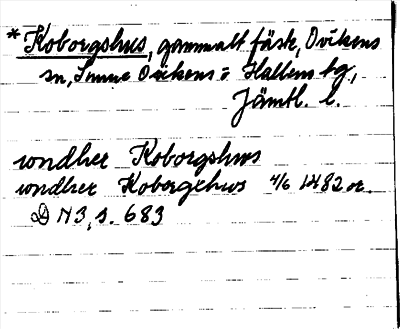 * Koborgshus, gammalt fäste, Ovikens
sn, Sunne Ovikens o Hallens tg,
Jämtl. l.
wndher Koborgshws
wndher Kobergxhws 4/6 1482 or.
D N3, s. 683